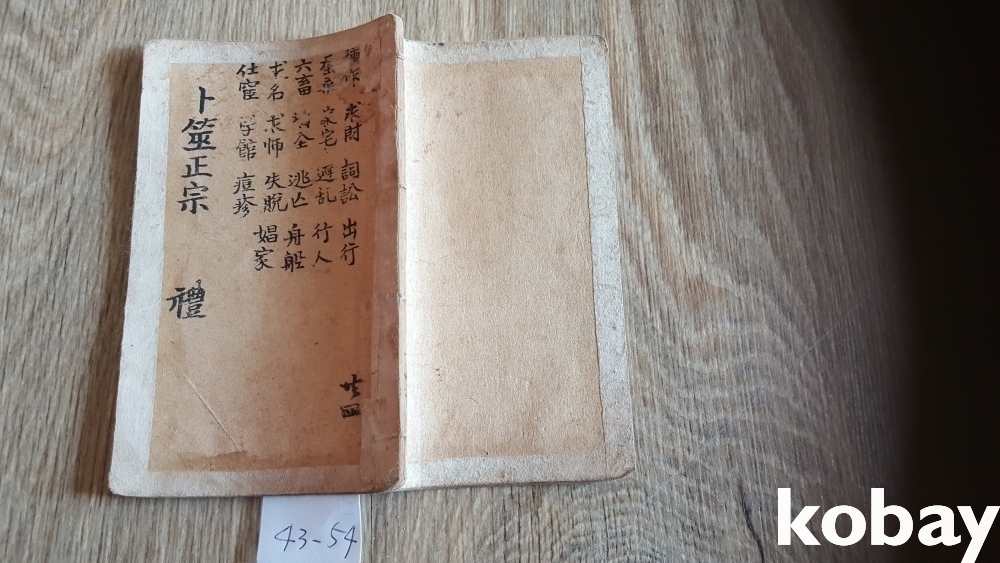 種作 求財 詞訟 出行
蚕桑 家宅 避乱 行人
六畜 逃亡 舟船
求名 求师 失脫 娼家
仕宦 学館 痘疹
卜筮正宗 禮
四
43-54
kobay